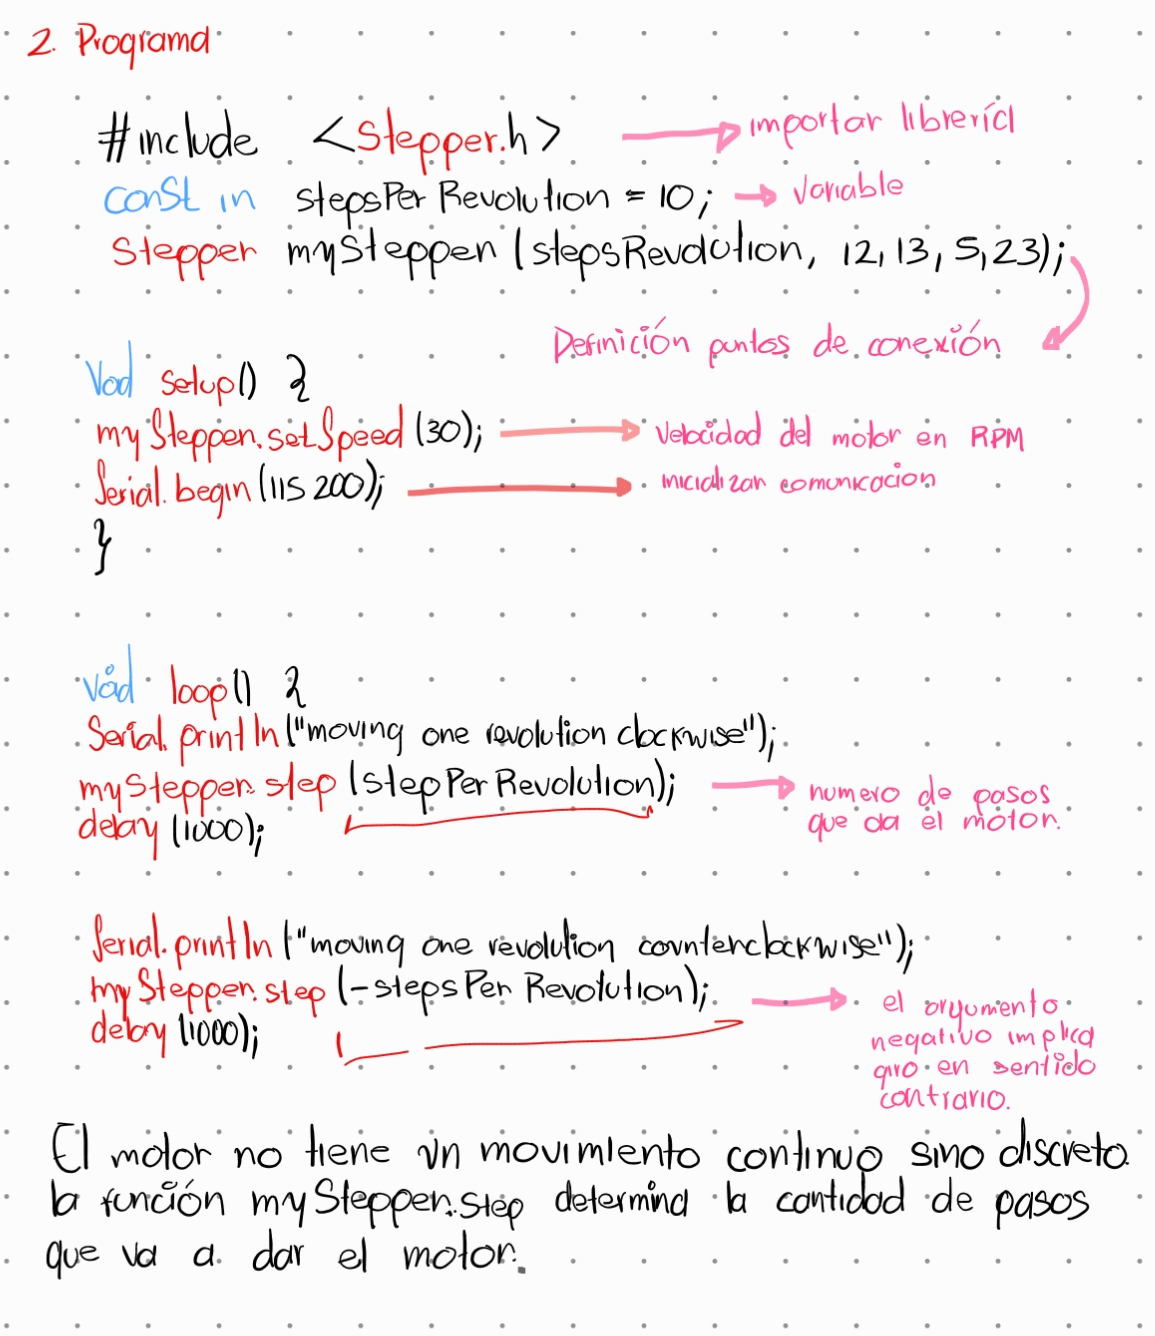 2. Programa
#include <Stepper.h> importar librería
const in stepsPer Revolution = 10; Variable
Stepper mySteppen (stepsRevolution, 12, 13, 5, 23);
Definición puntos de conexión
Void setup() {
my Steppen.setSpeed (30); Velocidad del motor en RPM
Serial.begin (115 200); inicializar comunicacion
}
void loop() {
Serial.println ("moving one revolution clockwise");
myStepper.step (stepPer Revolution); numero de pasos
que da el motor.
delay (1000);
Serial.println ("moving one revolution counterclockwise");
my Stepper.step (-stepsPer Revolution); el argumento
negativo implica
giro en sentido
contrario.
delay (1000);
El motor no tiene un movimiento continuo sino discreto.
la función my Stepper.step determina la cantidad de pasos
que va a dar el motor.